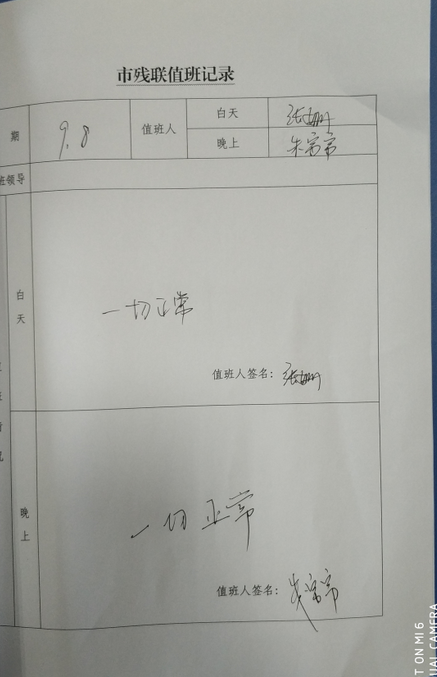 市残联值班记录
期 9.8 值班人 白天 张姗
晚上
班领导
白天 一切正常
值班人签名：张姗
况
晚上 一切正常
值班人签名：
T ON MI 6
UAL CAMERA